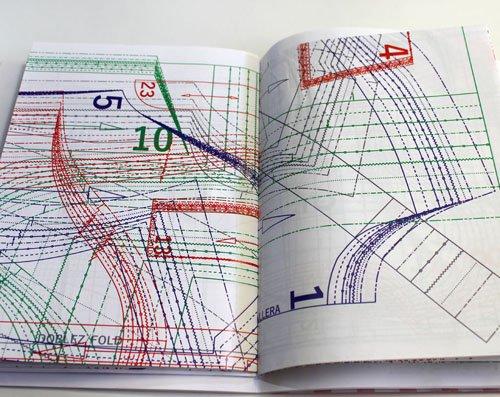 5
23
10
23
DOBLEZ FOLD
4
1
LLERA